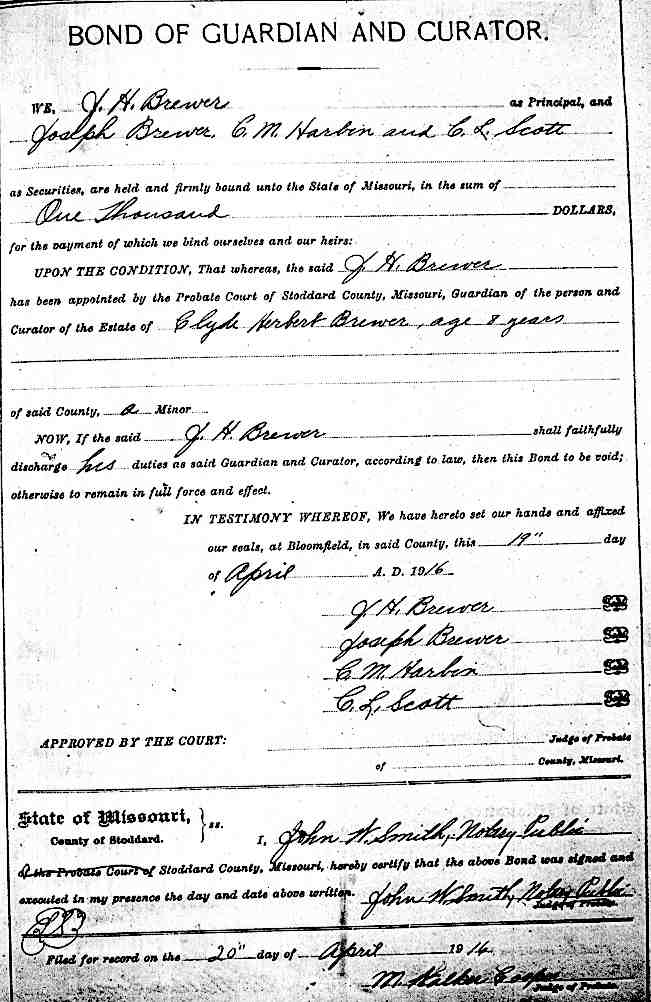 BOND OF GUARDIAN AND CURATOR.
WE, J. H. Brewer as Principal, and
Joseph Brewer, C. M. Harbin and C. L. Scott
as Securities, are held and firmly bound unto the State of Missouri, in the sum of
One Thousand DOLLARS,
for the payment of which we bind ourselves and our heirs:
UPON THE CONDITION, That whereas, the said J. H. Brewer
has been appointed by the Probate Court of Stoddard County, Missouri, Guardian of the person and
Curator of the Estate of Clyde Herbert Brewer, age 8 years
of said County, a Minor
NOW, If the said J. H. Brewer shall faithfully
discharge his duties as said Guardian and Curator, according to law, then this Bond to be void;
otherwise to remain in full force and effect.
IN TESTIMONY WHEREOF, We have hereto set our hands and affixed
our seals, at Bloomfield, in said County, this 19" day
of April A. D. 1916
J. H. Brewer
Joseph Brewer
C. M. Harbin
C. L. Scott
APPROVED BY THE COURT: Judge of Probate
of County, Missouri.
State of Missouri, } ss.
County of Stoddard.
I, John W. Smith, Notary Public
of the Probate Court of Stoddard County, Missouri, hereby certify that the above Bond was signed and
executed in my presence the day and date above written. John W. Smith, Notary Public
Judge of Probate.
Filed for record on the 20" day of April 1916
M. Walker Cooper
Judge of Probate.